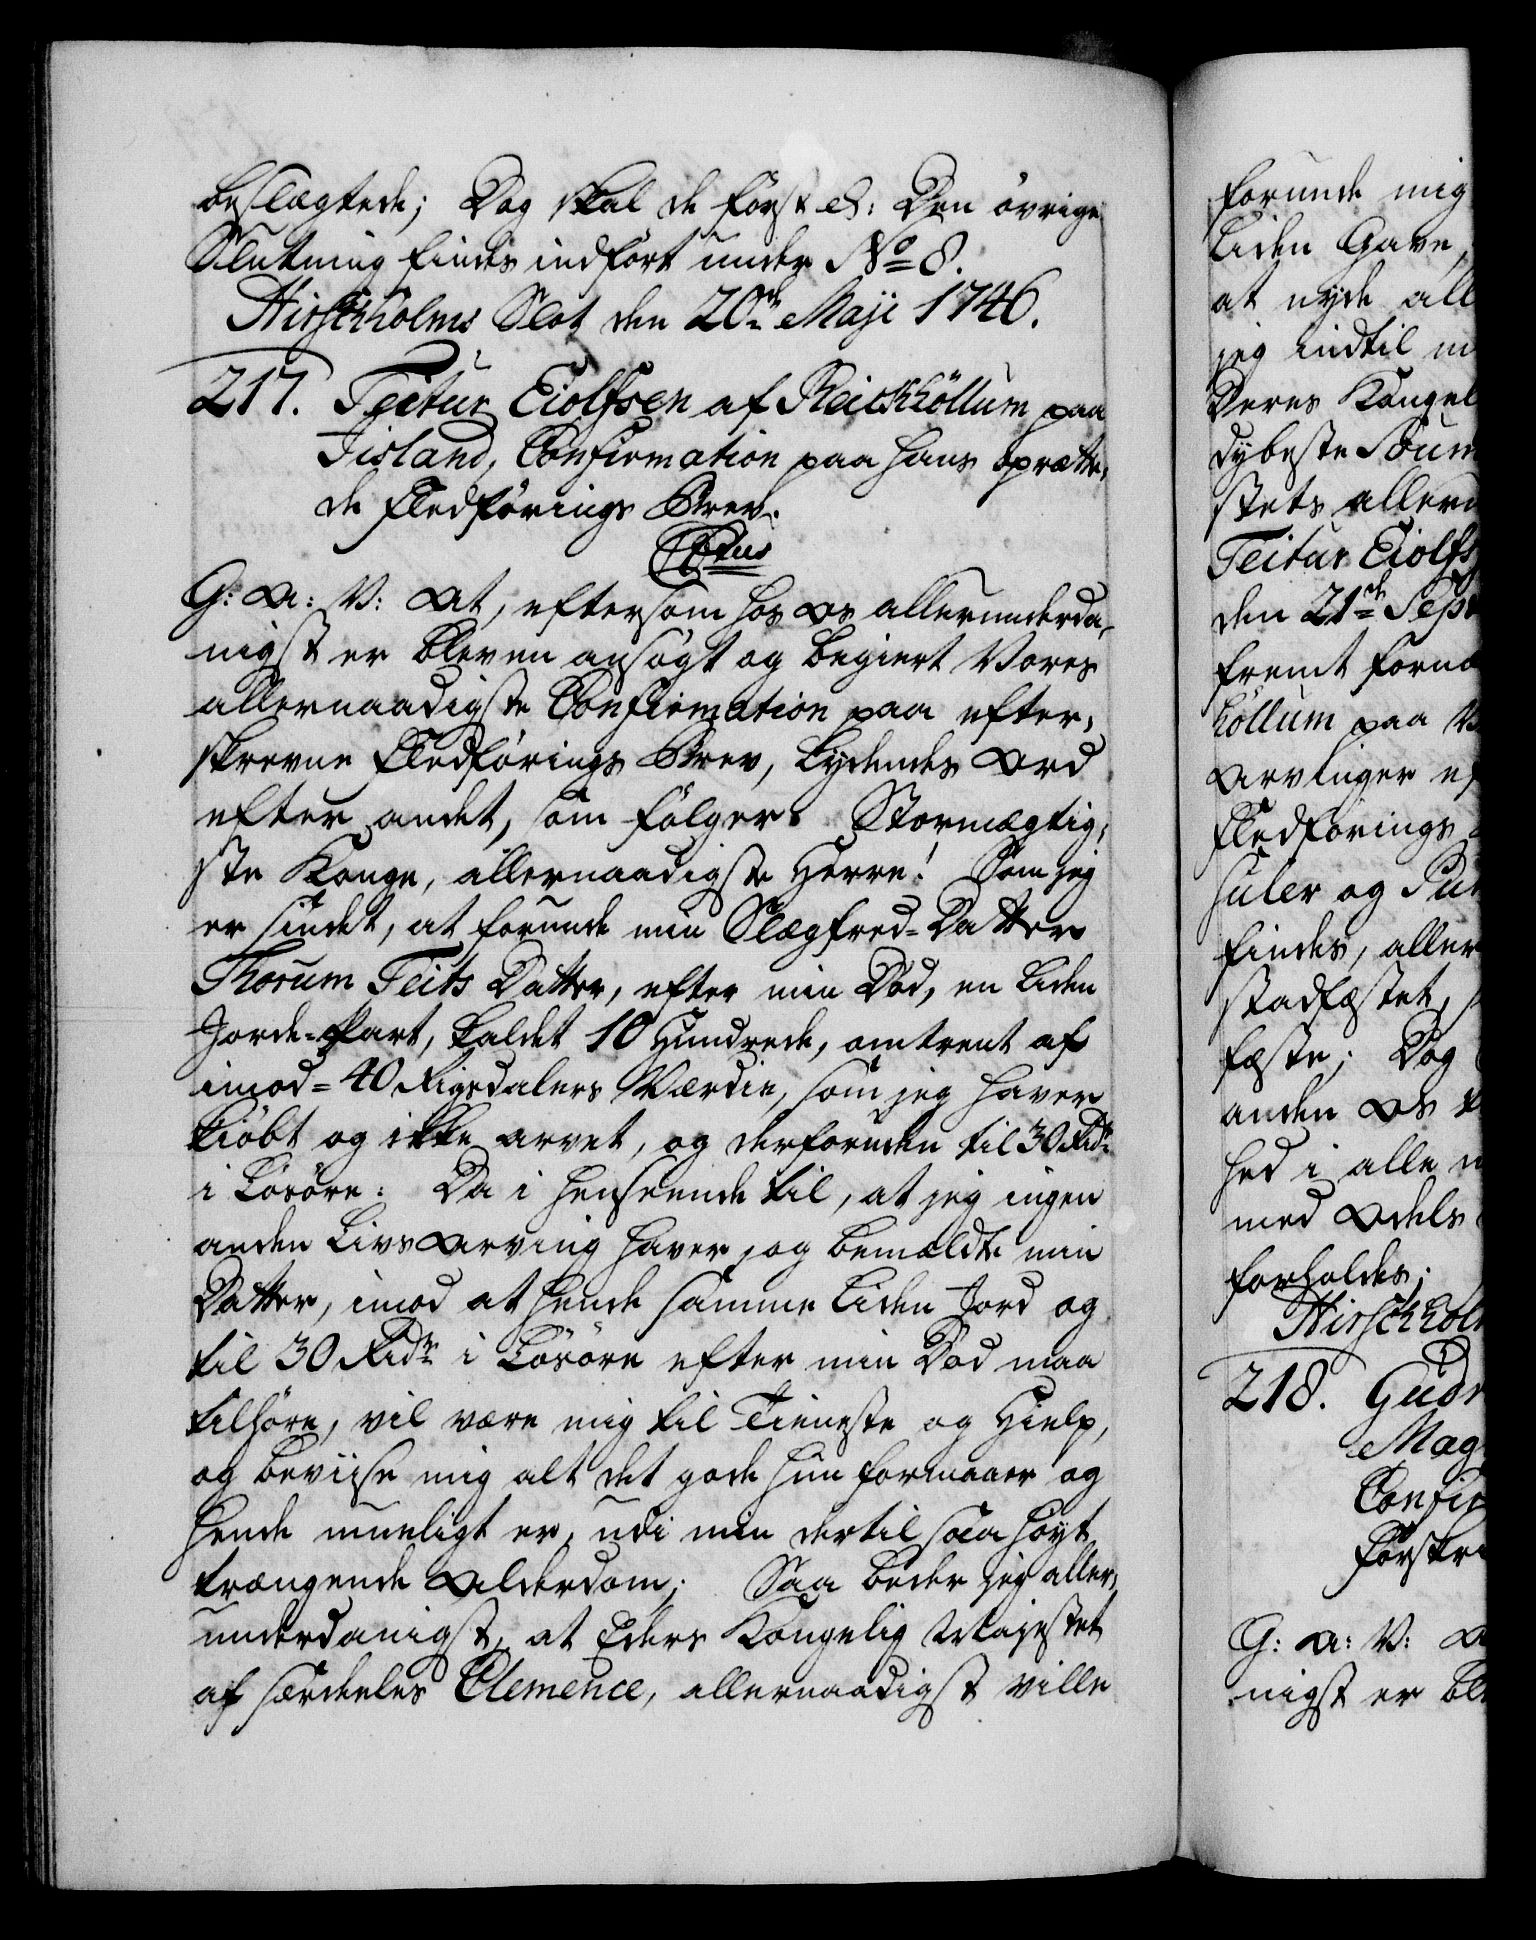 beslægtede; Dog skal de først &: Den övrige
Slutning findes indfört under No 8.
Hirschholms Slot den 20de Maji 1746.
217. Teitur Eiolfsen af Reickhöllum paa
Iisland, Confirmation paa hans oprætte,
de Fledförings Brev.
G: A: V: At, eftersom hos os allerunderda,
nigst er bleven ansögt og begiert Vores
allernaadigste Confirmation paa efter,
skrevne Fledförings Brev, lydendes Ord
efter andet, som fölger. Stormægtig,
ste Konge, allernaadigste Herre! Som jeg
er sindet, at forunde min Slegfred-Datter
Thorum Teits Datter, efter min Död, en liden
Jorde-Part, kaldet 10 Hundrede, omtrent af
imod = 40 Rigsdalers Værdie, som jeg haver
kiöbt og ikke arvet, og derforuden til 30 Rdr
i Lösöre: Da i henseende til, at jeg ingen
anden Livs Arving haver, og bemældte min
Datter, imod at hende samme liden Jord og
til 30 Rdr i Lösöre efter min Död maa
tilhöre, vil være mig til Tieneste og Hielp,
og beviise mig alt det gode hun formaaer og
hende mueligt er, udi min dertil saa höyt
trængende Alderdom; Saa beder jeg aller,
underdanigst, at Eders Kongelig Majestet
af særdeles Clemence, allernaadigst ville
forunde mig
liden Gave,
at nyde all
jeg indtil m
Deres Kongel
dybeste Soum
stets allerun
Teitur Eiolfs
den 21de Sept
fremt forne
höllum paa V
Arvinger ef
Fledförings
huler og Pun
findes, aller
stadfæstet, s
fæste; Dog
anden Os
hed i alle m
med Odels
forholdes;
Hirschholm
218. Gudr
Mag
Confir
Forskri
G: A: V: A
nigst er ble